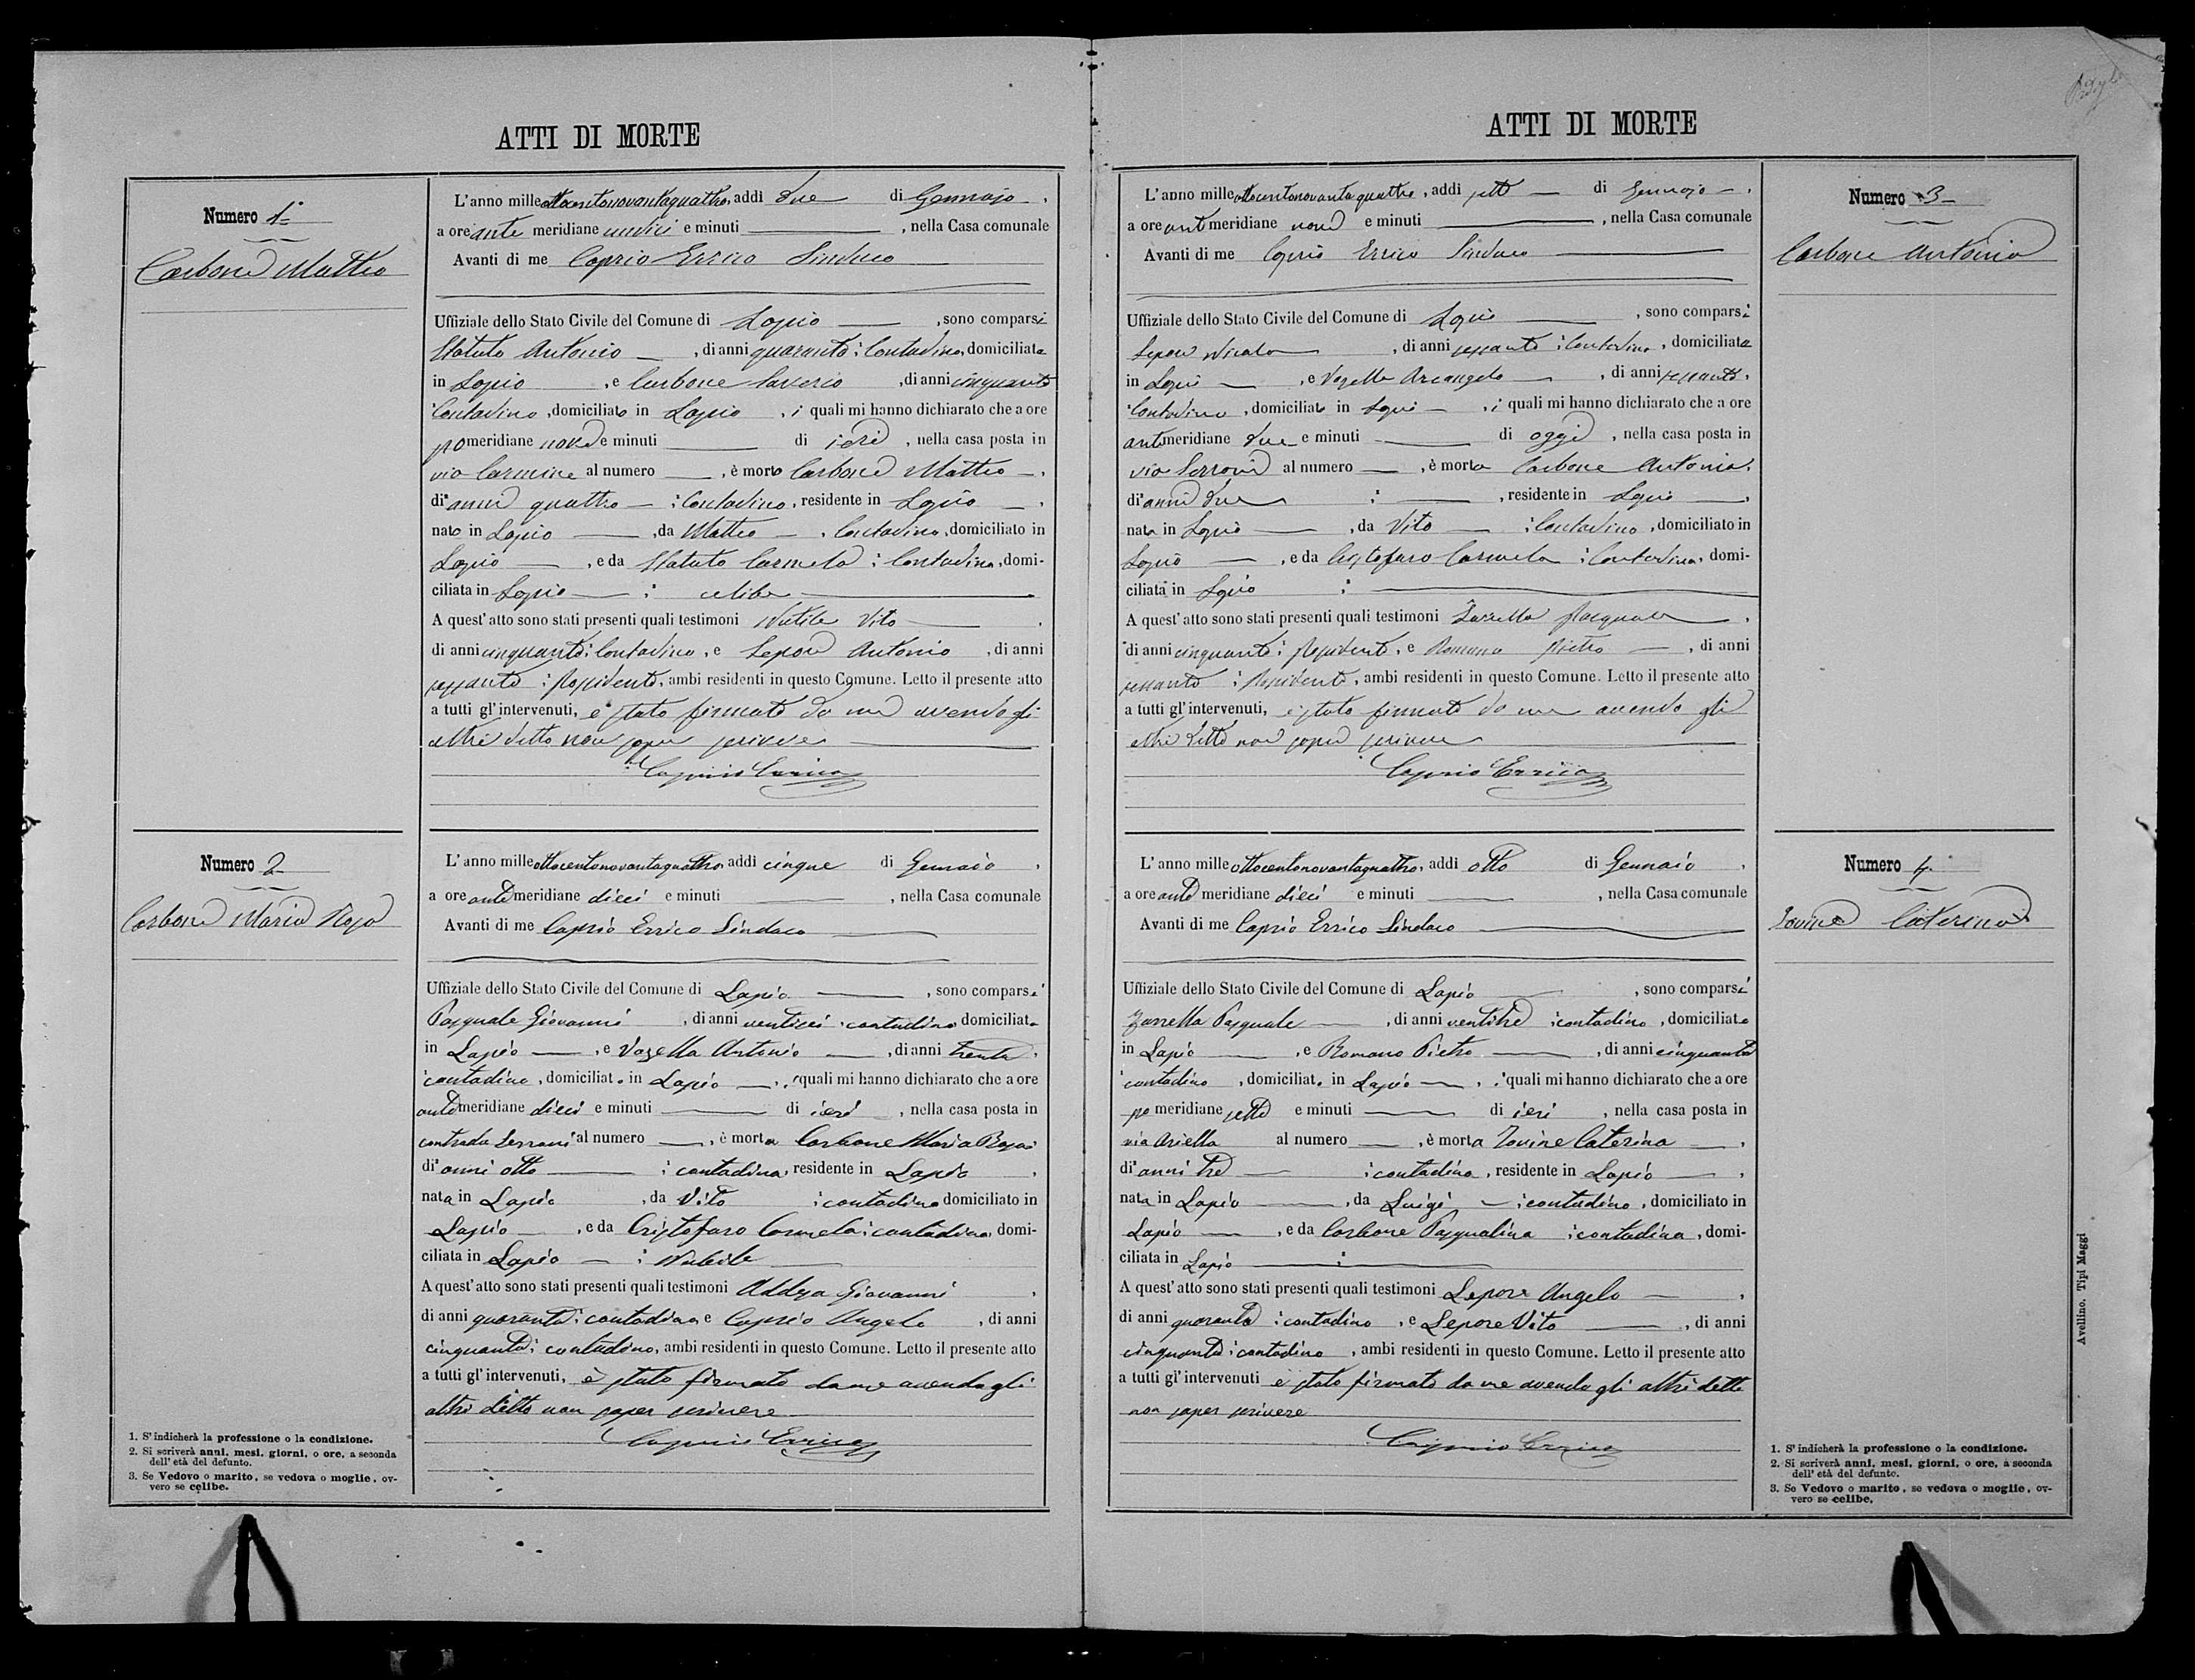 ATTI DI MORTE
Numero 1
Carbone Matteo
L'anno milleottocentonovantaquattro, addì due di Gennajo,
a ore ante meridiane undici e minuti — , nella Casa comunale
Avanti di me Caprio Errico Sindaco
Uffiziale dello Stato Civile del Comune di Lapio — , sono comparsi
Statuto Antonio — , di anni quaranta; Contadino, domiciliato
in Lapio , e Carbone Saverio , di anni cinquanta
Contadino , domiciliato in Lapio , i quali mi hanno dichiarato che a ore
pomeridiane nove e minuti — di ieri , nella casa posta in
via Carmine al numero — , è morto Carbone Matteo — ,
di anni quattro — ; Contadino, residente in Lapio — ,
nato in Lapio — , da Matteo — , Contadino, domiciliato in
Lapio — , e da Statuto Carmela ; Contadina, domi-
ciliata in Lapio — ; celibe —
A quest'atto sono stati presenti quali testimoni Nutile Vito — ,
di anni cinquanta; Contadino , e Lepore Antonio , di anni
sessanta ; Possidente, ambi residenti in questo Comune. Letto il presente atto
a tutti gl'intervenuti, è stato firmato da me avendo gli
altri detto non saper scrivere
Caprio Errico
Numero 2
Carbone Maria Rosa
L'anno milleottocentonovantaquattro, addì cinque di Gennaio ,
a ore antemeridiane dieci e minuti — , nella Casa comunale
Avanti di me Caprio Errico Sindaco —
Uffiziale dello Stato Civile del Comune di Lapio — , sono comparsi
Pasquale Giovanni , di anni ; contadino domiciliato
in Lapio — , e Vozella Antonio — , di anni trenta ,
contadino , domiciliato in Lapio — , i quali mi hanno dichiarato che a ore
antemeridiane dieci e minuti — di ieri , nella casa posta in
contrada Serroni al numero — , è morta Carbone Maria Rosa
di anni otto — ; contadina, residente in Lapio ,
nata in Lapio , da Vito ; contadino domiciliato in
Lapio — , e da Cristofaro Carmela ; contadina, domi-
ciliata in Lapio — ; Nubile —
A quest'atto sono stati presenti quali testimoni Giovanni ,
di anni quaranta ; contadino e Caprio Angelo , di anni
cinquanta ; contadino, ambi residenti in questo Comune. Letto il presente atto
a tutti gl'intervenuti, è stato firmato da me avendo gli
altri detto non saper scrivere
Caprio Errico
1. S'indicherà la professione o la condizione.
2. Si scriverà anni, mesi, giorni, o ore, a seconda
dell'età del defunto.
3. Se Vedovo o marito, se vedova o moglie, ov-
vero se celibe.
ATTI DI MORTE
Numero 3
Carbone Antonia
L'anno milleottocentonovantaquattro, addì sette — di Gennajo — ,
a ore antimeridiane nove e minuti — , nella Casa comunale
Avanti di me Caprio Errico Sindaco —
Uffiziale dello Stato Civile del Comune di Lapio — , sono comparsi
Lepore Nicola — , di anni sessanta ; Contadino , domiciliato
in Lapio — , e Vozella Arcangelo — , di anni sessanta ,
Contadino , domiciliato in Lapio — , i quali mi hanno dichiarato che a ore
antimeridiane due e minuti — di oggi , nella casa posta in
via Serroni al numero — , è morta Carbone Antonia ,
di anni due ; — , residente in Lapio — ,
nata in Lapio — , da Vito — ; Contadino , domiciliato in
Lapio — , e da Cristofaro Carmela ; Contadina , domi-
ciliata in Lapio ; —
A quest'atto sono stati presenti quali testimoni Zarrella Pasquale — ,
di anni cinquanta ; Possidente , e Romano Pietro — , di anni
sessanta ; Possidente , ambi residenti in questo Comune. Letto il presente atto
a tutti gl'intervenuti, è stato firmato da me avendo gli
altri detto non saper scrivere
Caprio Errico
Numero 4
Iovine Caterina
L'anno milleottocentonovantaquattro, addì otto di Gennaio ,
a ore antemeridiane dieci e minuti — , nella Casa comunale
Avanti di me Caprio Errico Sindaco —
Uffiziale dello Stato Civile del Comune di Lapio — , sono comparsi
Zarrella Pasquale — , di anni ventitre ; contadino , domiciliato
in Lapio — , e Romano Pietro — , di anni cinquanta
contadino , domiciliato in Lapio — , i quali mi hanno dichiarato che a ore
pomeridiane sette e minuti — di ieri , nella casa posta in
via Ariella al numero — , è morta Iovine Caterina — ,
di anni tre — ; contadina , residente in Lapio — ,
nata in Lapio — , da Luigi — ; contadino , domiciliato in
Lapio — , e da Carbone Pasqualina ; contadina , domi-
ciliata in Lapio — ; —
A quest'atto sono stati presenti quali testimoni Lepore Angelo — ,
di anni quaranta ; contadino , e Lepore Vito — , di anni
cinquanta ; contadino , ambi residenti in questo Comune. Letto il presente atto
a tutti gl'intervenuti è stato firmato da me avendo gli altri detto
non saper scrivere
Caprio Errico
1. S'indicherà la professione o la condizione.
2. Si scriverà anni, mesi, giorni, o ore, a seconda
dell'età del defunto.
3. Se Vedovo o marito, se vedova o moglie, ov-
vero se celibe.
Avellino, Tipi Maggi